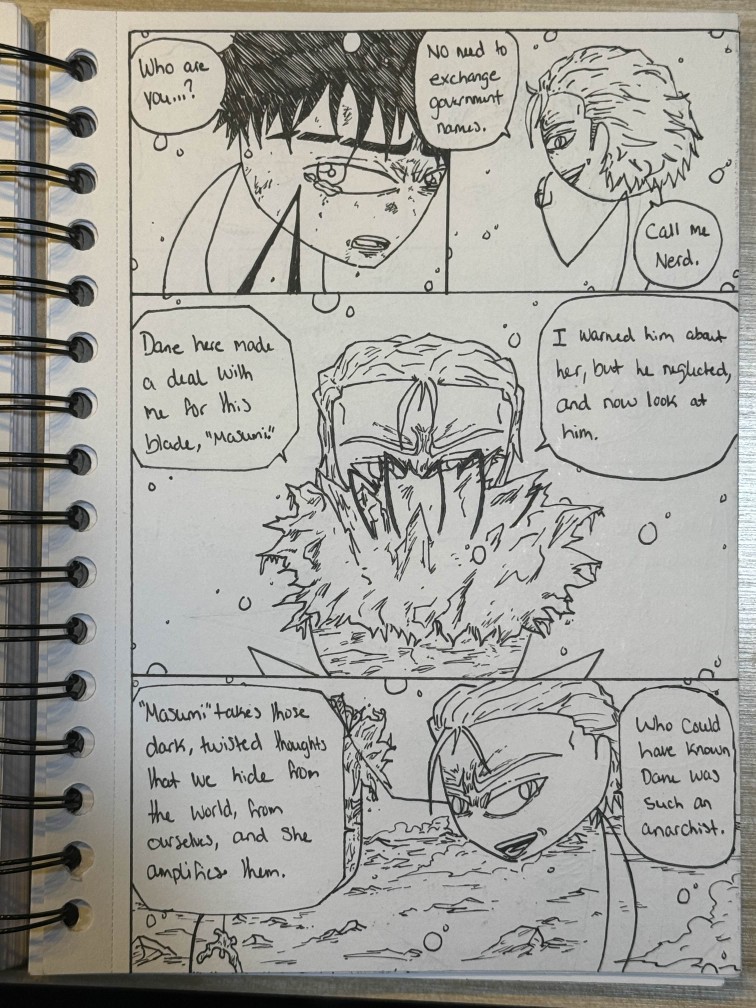 Who are
you...?
No need to
exchange
government
names.
Call me
Nerd.
Dane here made
a deal with
me for this
blade, "Masumi."
I warned him about
her, but he neglected,
and now look at
him.
"Masumi" takes those
dark, twisted thoughts
that we hide from
the world, from
ourselves, and she
amplifies them.
Who could
have known
Dane was
such an
anarchist.